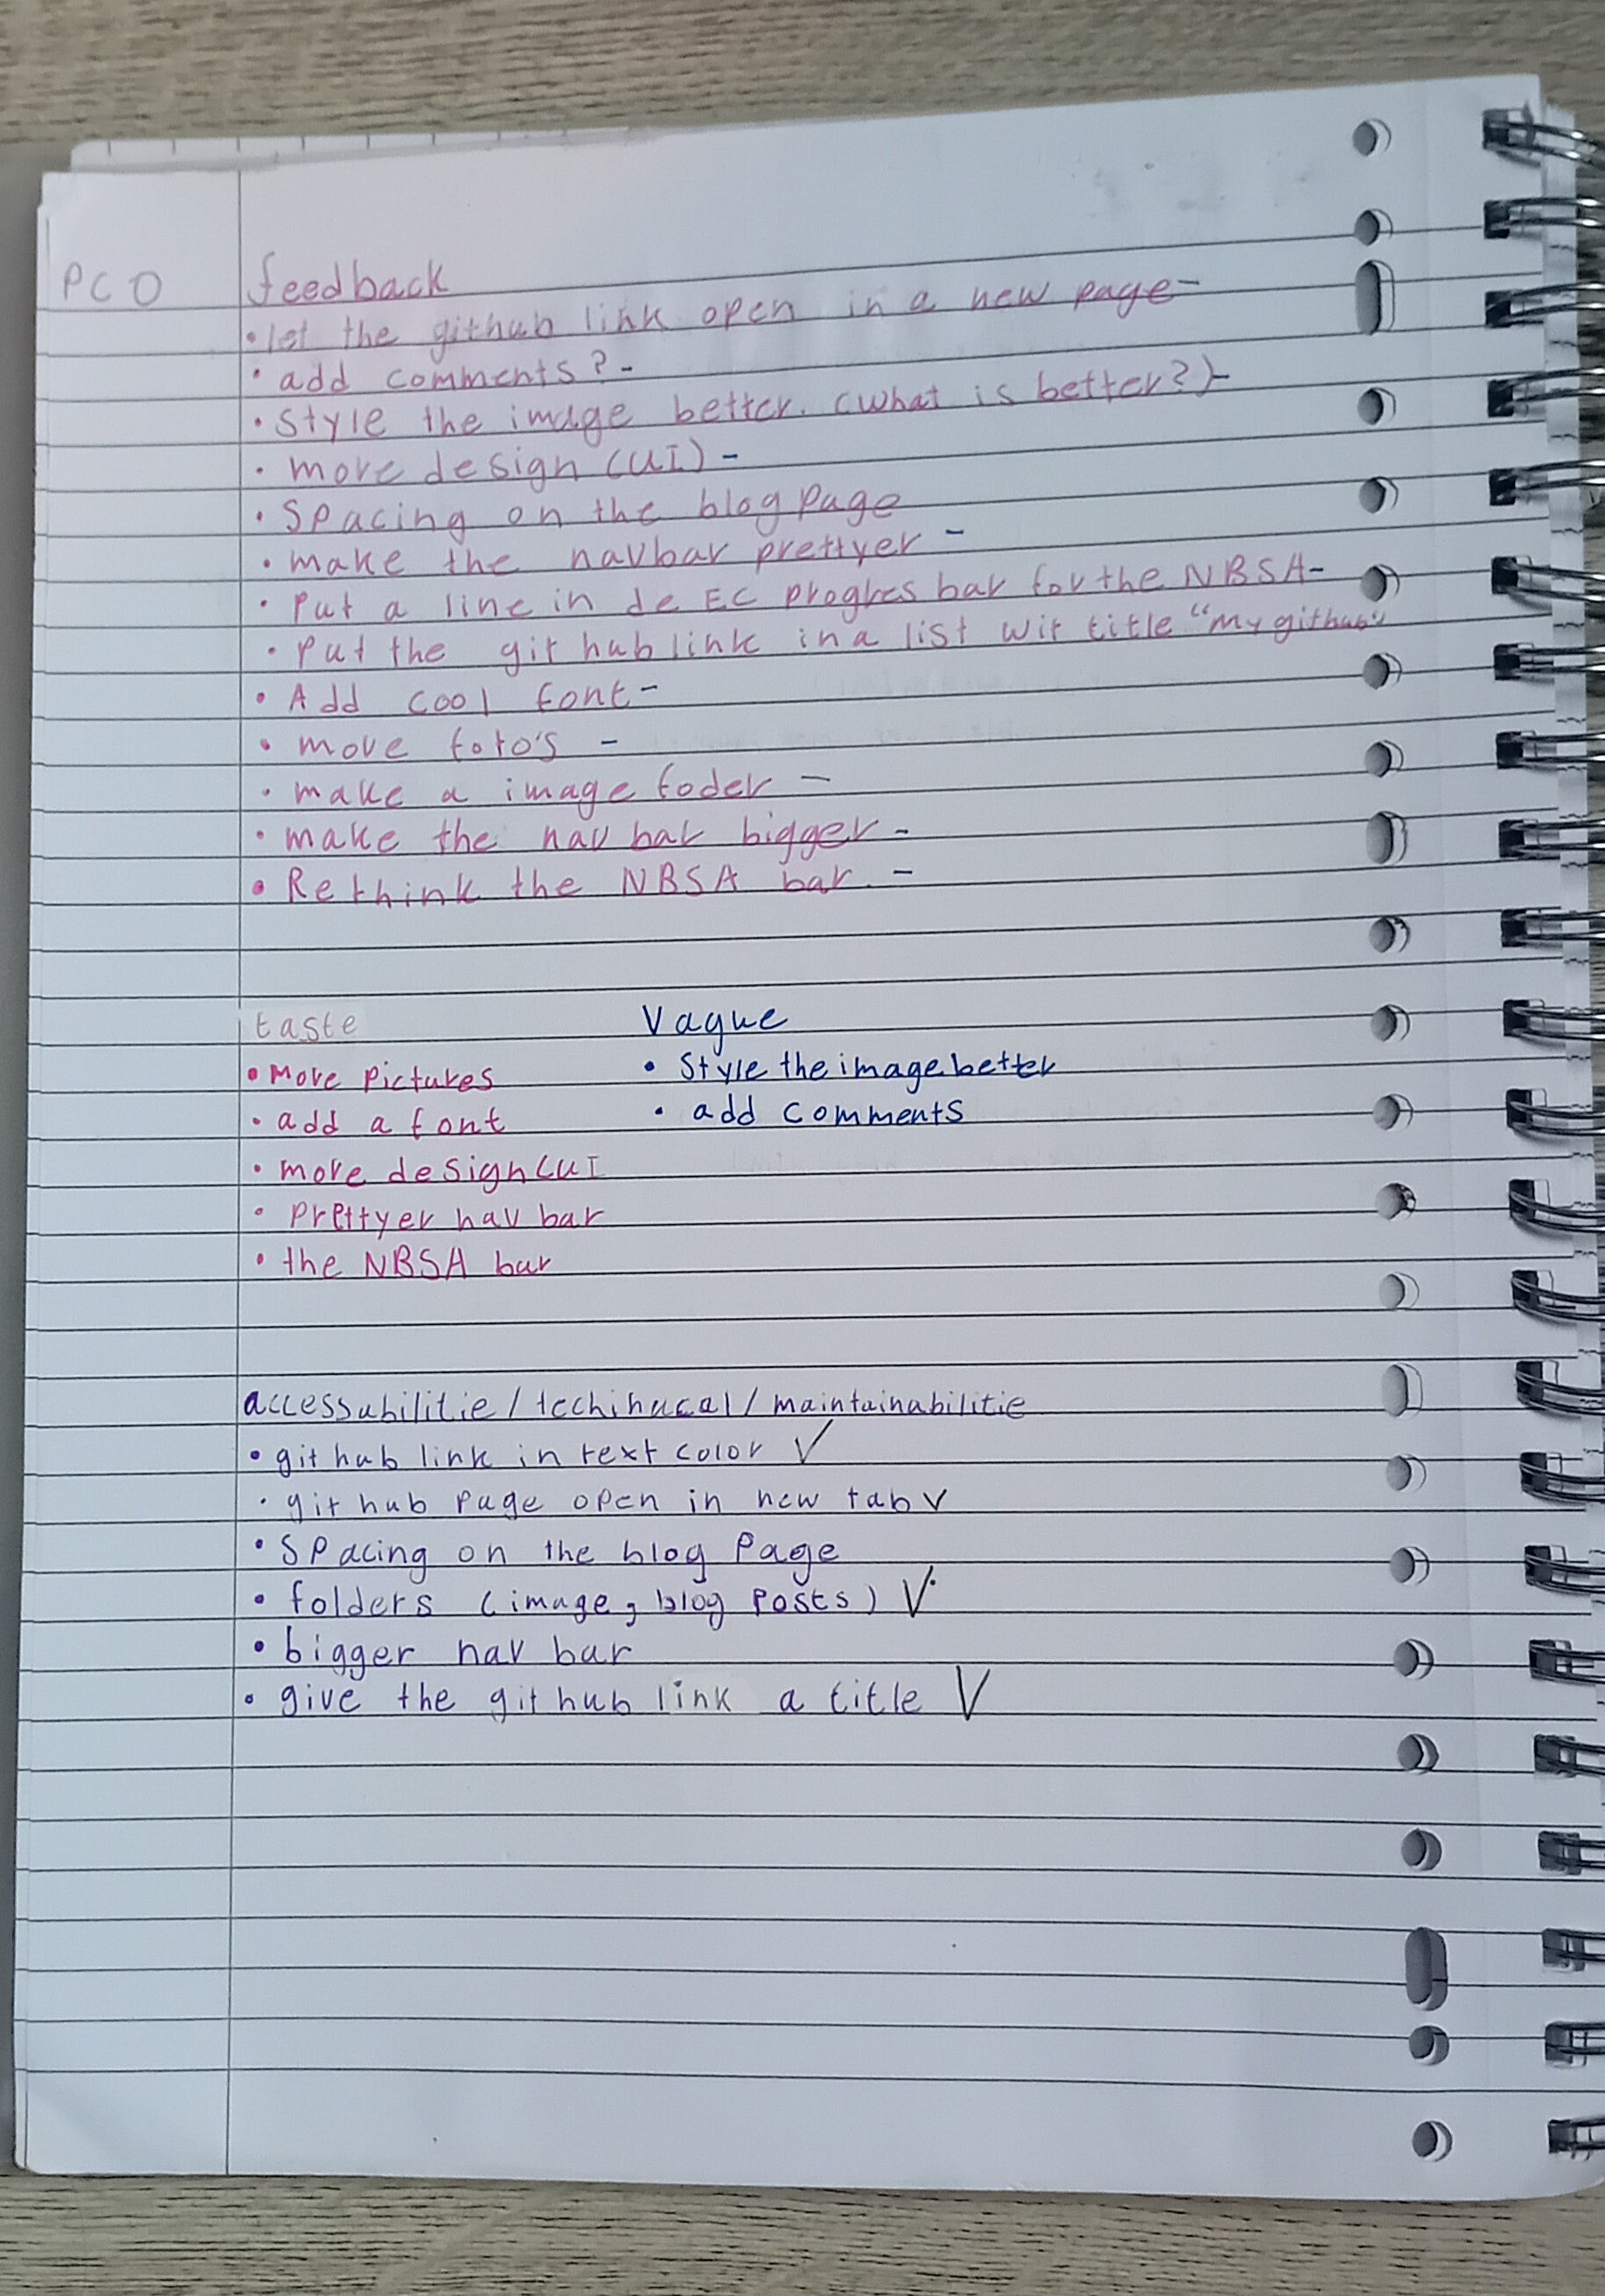 PCO feedback
• let the github link open in a new page -
• add comments? -
• style the image better. (what is better?) -
• more design (UI) -
• Spacing on the blog page
• make the navbar prettyer -
• put a line in de EC progres bar for the NBSA -
• put the git hub link in a list wit title "my github"
• Add cool font -
• more foto's -
• make a image foder -
• make the nav bar bigger -
• Rethink the NBSA bar. -
taste Vague
• More pictures • Style the image better
• add a font • add comments
• more design (UI
• prettyer nav bar
• the NBSA bar
accessubilitie / techinucal / maintainabilitie
• git hub link in text color V
• git hub page open in new tab V
• Spacing on the blog Page
• folders (image, blog posts) V
• bigger nav bar
• give the git hub link a title V